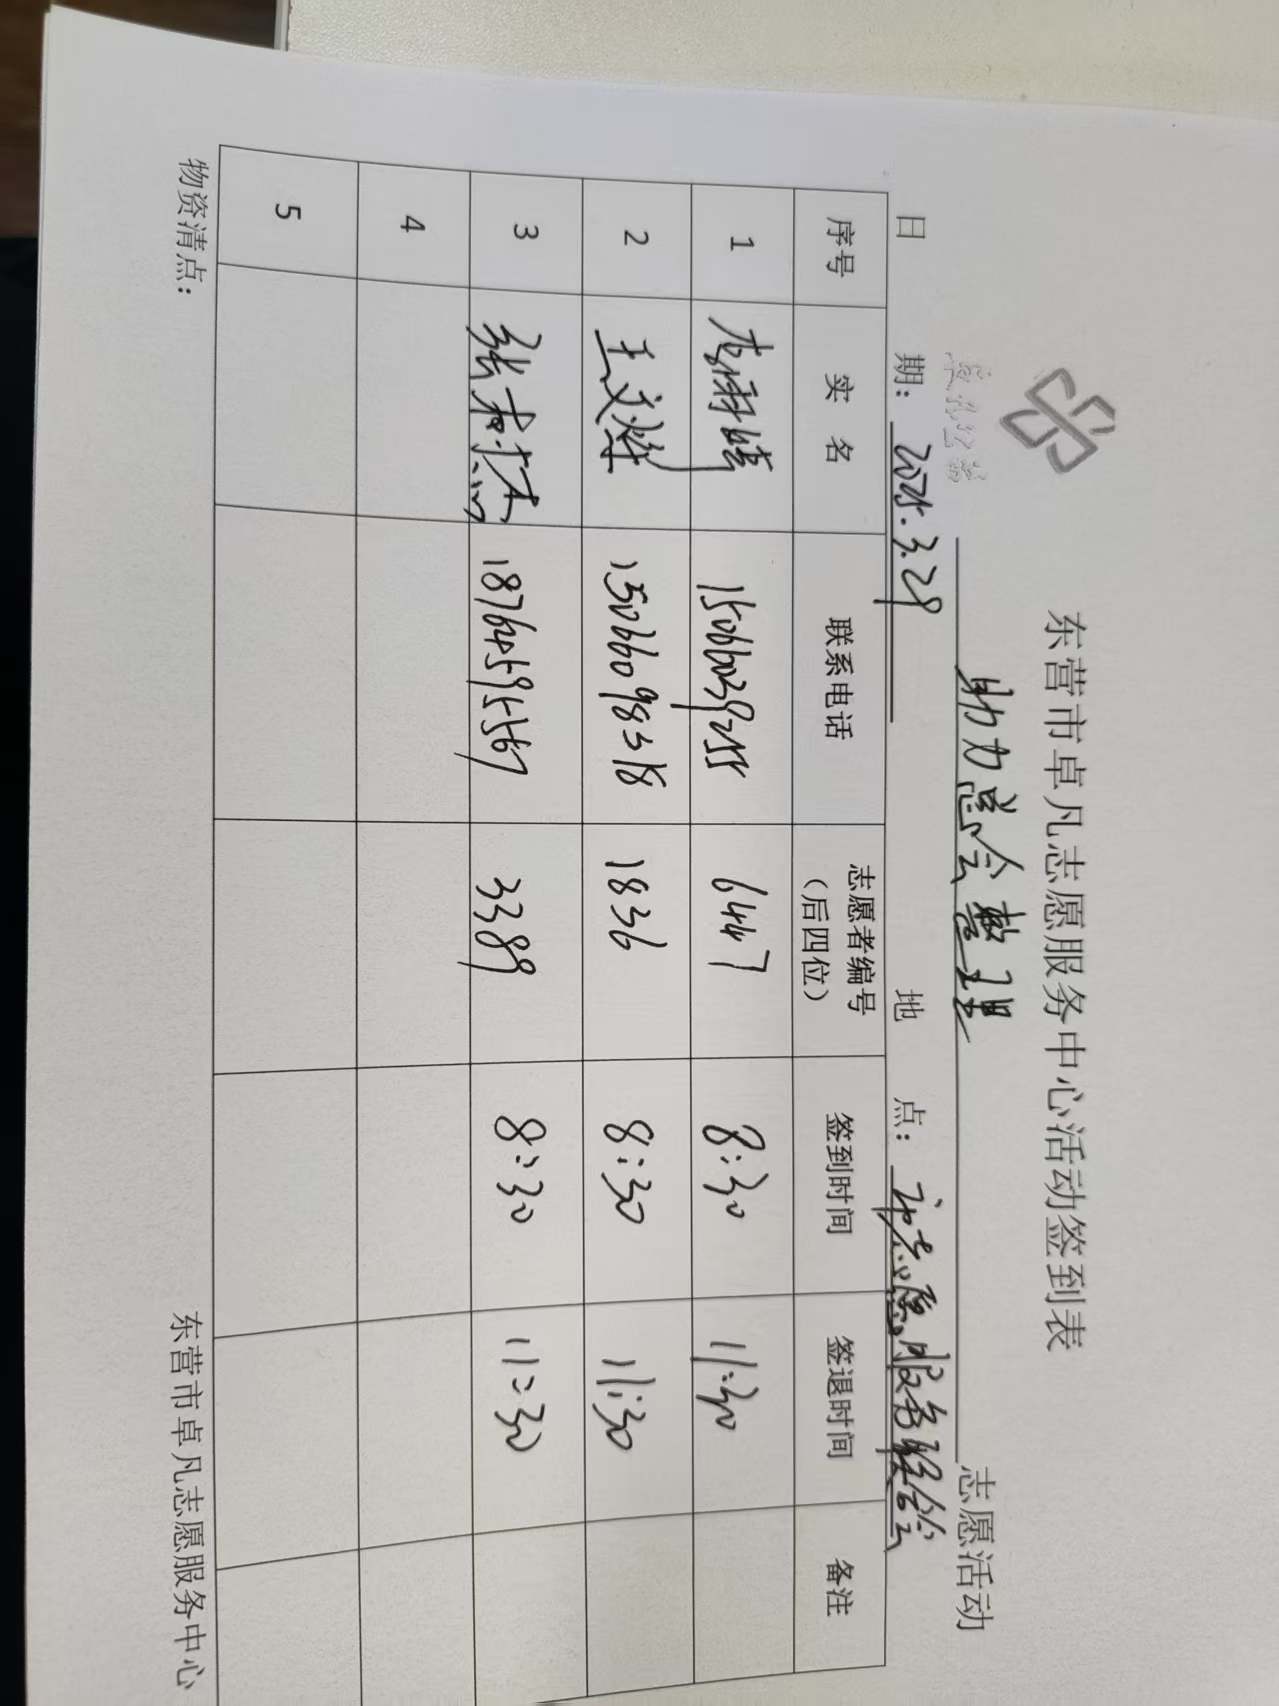 东营市卓凡志愿服务中心活动签到表
助力总会整理 志愿活动
日 期：2025.3.29 地 点：市志愿服务联合会
序号 实 名 联系电话 志愿者编号（后四位） 签到时间 签退时间 备注
1 李雨晴 15066039255 6447 8:30 11:30
2 王文烨 15066098318 1836 8:30 11:30
3 18764595567 3389 8:30 11:30
4
5
物资清点：
东营市卓凡志愿服务中心